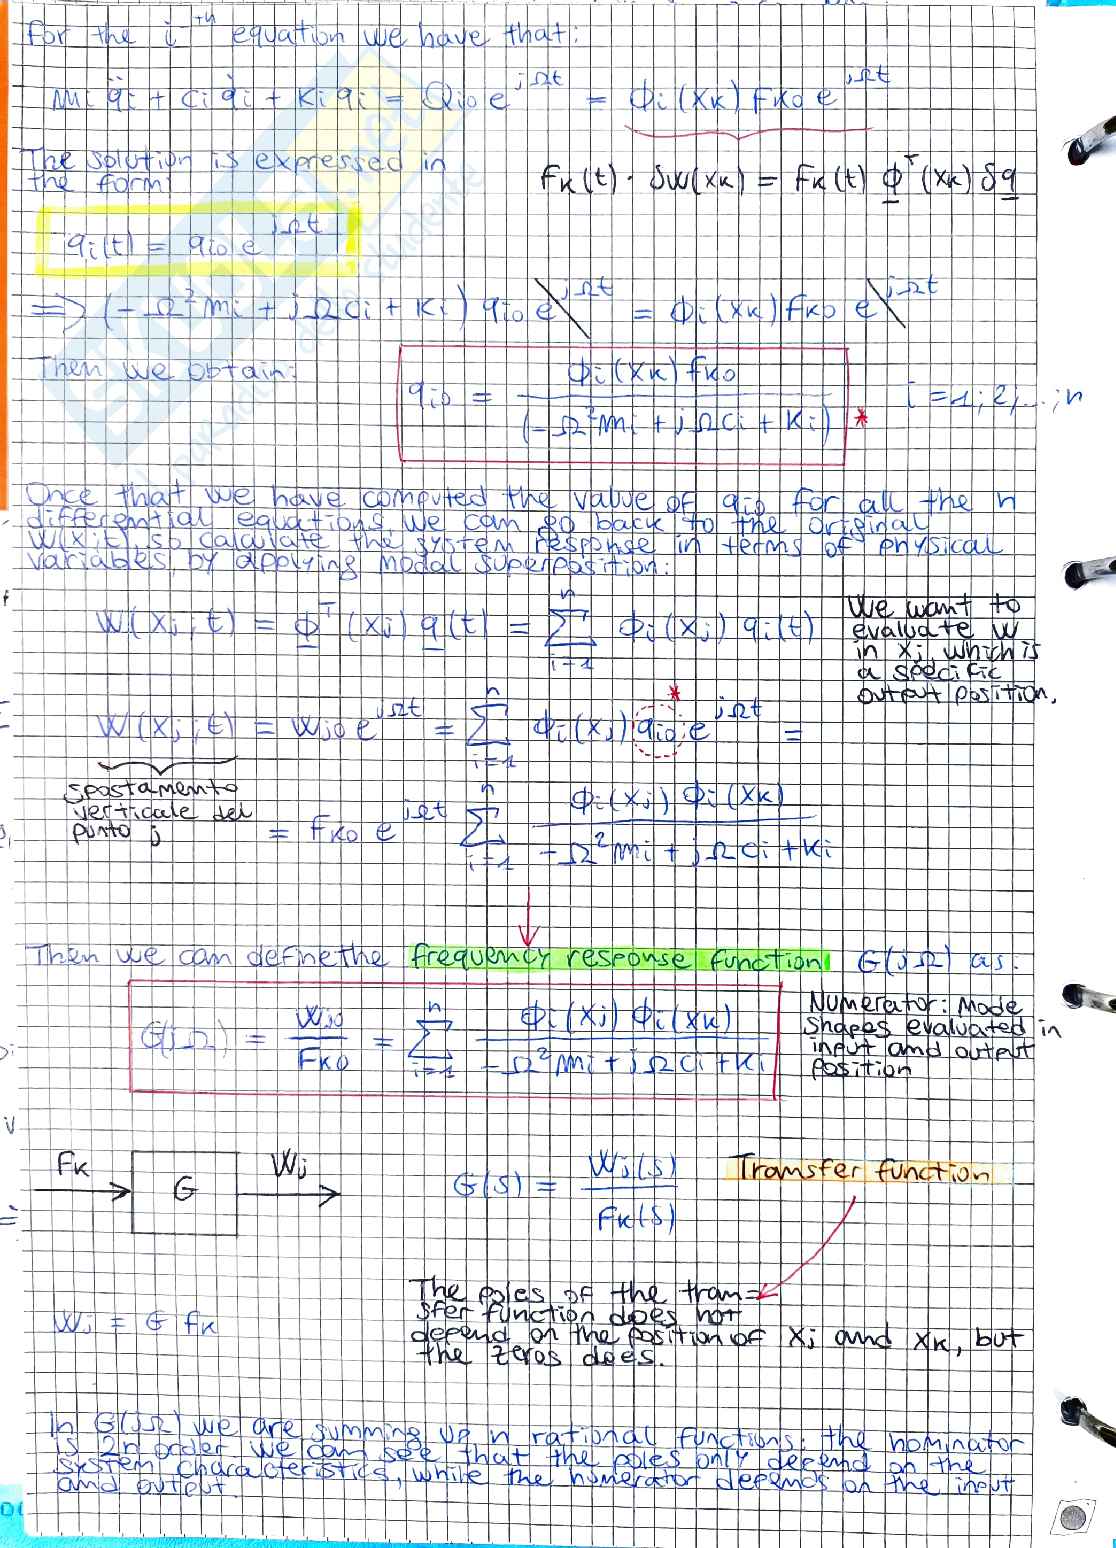 For the i^th equation we have that:
mi q̈i + ci q̇i + Ki qi = Qio e^jΩt = ϕi(xk) Fko e^jΩt
The solution is expressed in
the form:
Fk(t) · δw(xk) = Fk(t) ϕ^T(xk) δq
qi(t) = qio e^jΩt
=> (-Ω²mi + jΩci + Ki) qio e^jΩt = ϕi(xk) Fko e^jΩt
Then we obtain:
qio = ϕi(xk) Fko / (-Ω²mi + jΩci + Ki) * i = 1; 2; ...; n
Once that we have computed the value of qio for all the n
differential equations, we can go back to the original
w(x;t) so calculate the system response in terms of physical
variables by applying modal superposition:
w(xj;t) = ϕ^T(xj) q(t) = Σ i=1 n ϕi(xj) qi(t)
We want to
evaluate w
in xj, which is
a specific
output position.
w(xj;t) = wjo e^jΩt = Σ i=1 n ϕi(xj) qio e^jΩt =
*
spostamento
verticale del
punto j
= Fko e^jΩt Σ i=1 n ϕi(xj) ϕi(xk) / -Ω²mi + jΩci + Ki
Then we can define the frequency response function G(jΩ) as:
G(jΩ) = wjo / Fko = Σ i=1 n ϕi(xj) ϕi(xk) / -Ω²mi + jΩci + Ki
Numerator: Mode
shapes evaluated in
input and output
position
Fk G Wj
G(s) = Wj(s) / Fk(s) Transfer function
The poles of the tran=
sfer function does not
depend on the position of xj and xk, but
the zeros does.
Wj = G Fk
In G(jΩ) we are summing up n rational functions: the nominator
is 2n order we can see that the poles only depend on the
system characteristics, while the numerator depends on the input
and output.